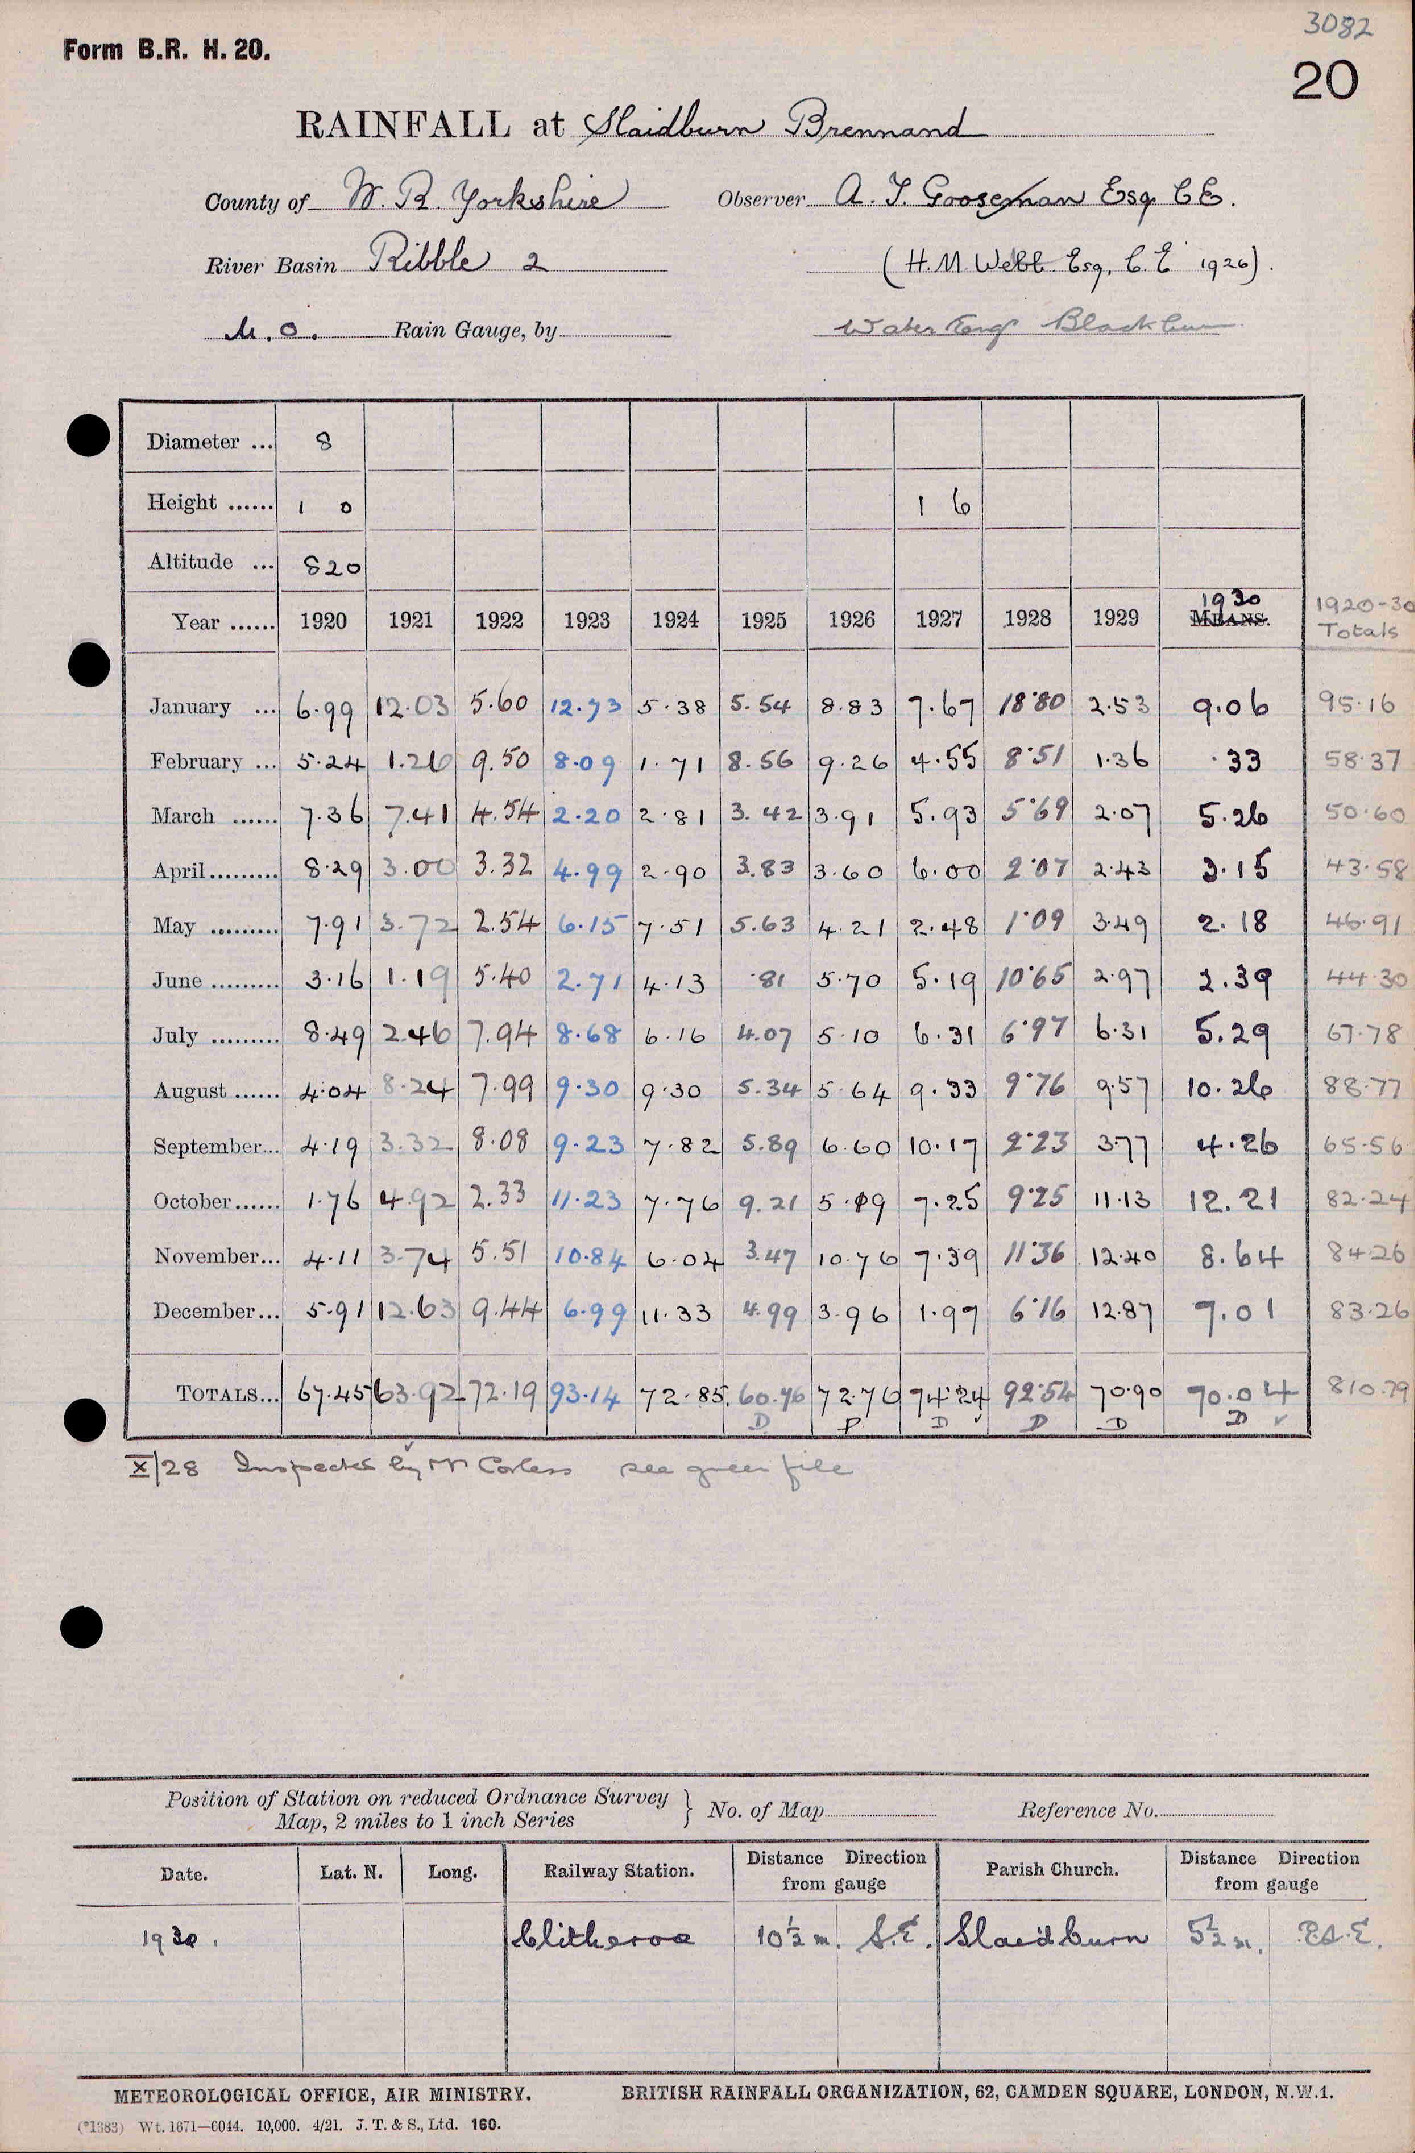 3082
Form B.R. H. 20.
20
RAINFALL at Slaidburn Brennand
County of W. R. Yorkshire Observer A. T. Gooseman Esq. C.E.
River Basin Ribble 2 (H. M. Webb Esq. C.E. 1926).
M.O. Rain Gauge, by Water Engr Blackburn
Diameter ... 8
Height ...... 1 0 1 6
Altitude ... 820
Year ...... 1920 1921 1922 1923 1924 1925 1926 1927 1928 1929 MEANS. 1930 1920-30 Totals
January ... 6.99 12.03 5.60 12.73 5.38 5.54 8.83 7.67 18.80 2.53 9.06 95.16
February ... 5.24 1.26 9.50 8.09 1.71 8.56 9.26 4.55 8.51 1.36 .33 58.37
March ...... 7.36 7.41 4.54 2.20 2.81 3.42 3.91 5.93 5.69 2.07 5.26 50.60
April......... 8.29 3.00 3.32 4.99 2.90 3.83 3.60 6.00 2.07 2.43 3.15 43.58
May ......... 7.91 3.72 2.54 6.15 7.51 5.63 4.21 2.48 1.09 3.49 2.18 46.91
June ......... 3.16 1.19 5.40 2.71 4.13 .81 5.70 5.19 10.65 2.97 2.39 44.30
July ......... 8.49 2.46 7.94 8.68 6.16 4.07 5.10 6.31 6.97 6.31 5.29 67.78
August ...... 4.04 8.24 7.99 9.30 9.30 5.34 5.64 9.33 9.76 9.57 10.26 88.77
September... 4.19 3.32 8.08 9.23 7.82 5.89 6.60 10.17 2.23 3.77 4.26 65.56
October...... 1.76 4.92 2.33 11.23 7.76 9.21 5.19 7.25 9.25 11.13 12.21 82.24
November... 4.11 3.74 5.51 10.84 6.04 3.47 10.76 7.39 11.36 12.40 8.64 84.26
December... 5.91 12.63 9.44 6.99 11.33 4.99 3.96 1.97 6.16 12.87 7.01 83.26
TOTALS... 67.45 63.92 72.19 93.14 72.85 60.76 72.76 74.24 92.54 70.90 70.04 810.79
D P D D D D
X/28 Inspected by Mr Corless see green file
Position of Station on reduced Ordnance Survey
Map, 2 miles to 1 inch Series } No. of Map Reference No.
Date. Lat. N. Long. Railway Station. Distance Direction from gauge Parish Church. Distance Direction from gauge
1930. Clitheroe 10½ m. S.E. Slaidburn 5½ m. E.S.E.
METEOROLOGICAL OFFICE, AIR MINISTRY. BRITISH RAINFALL ORGANIZATION, 62, CAMDEN SQUARE, LONDON, N.W.1.
(*1383) Wt. 1671—6044. 10,000. 4/21. J. T. & S., Ltd. 160.